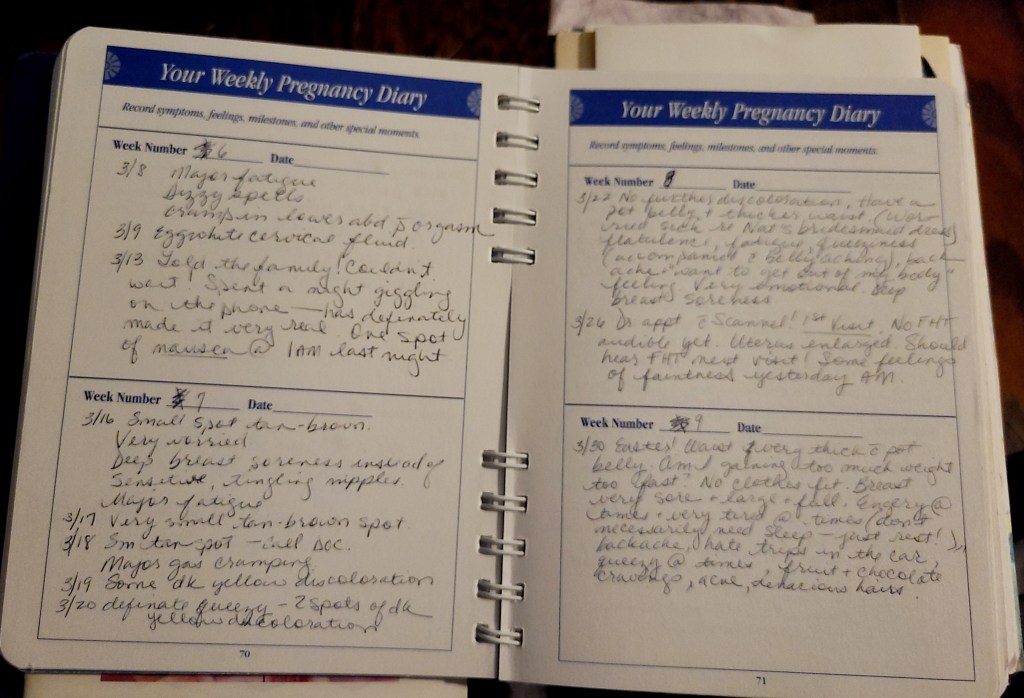 Your Weekly Pregnancy Diary
Record symptoms, feelings, milestones, and other special moments.
Week Number 6 Date
3/8 Major fatigue
Dizzy spells
cramp in lower abd s̄ orgasm
3/9 Eggwhite cervical fluid
3/13 Told the family! Couldn't
wait! Spent a night giggling
on the phone — has definately
made it very real. One spot
of nausea @ 1AM last night
Week Number 7 Date
3/16 Small spot tan-brown.
Very worried
Deep breast soreness instead of
Sensitive, tingling nipples.
Major fatigue
3/17 Very small tan-brown spot
3/18 Sm tan spot — call Doc.
Major gas cramping
3/19 Some dk yellow discoloration
3/20 definate queezy — 2 spots of dk
yellow discoloration
70
Your Weekly Pregnancy Diary
Record symptoms, feelings, milestones, and other special moments.
Week Number 8 Date
3/22 No further discoloration. Have a
pot belly + thicker waist. (Wor-
ried sick re Nat's bridesmaid dress)
flatulence, fatigue, queeziness
(accompanied c̄ belly aching), back-
ache "want to get out of my body"
feeling. Very emotional. Deep
breast soreness
3/26 Dr appt c̄ Scannel! 1st Visit. No FHT
audible yet. Uterus enlarged. Should
hear FHT next visit! Some feelings
of faintness yesterday AM.
Week Number 9 Date
3/30 Easter! Waist very thick c̄ pot
belly. Am I gaining too much weight
too fast? No clothes fit. Breast
very sore + large + full. Energy @
times + very tired @ times (don't
necessarily need sleep — just rest!),
backache, hate trips in the car,
queezy @ times, fruit + chocolate
cravings, acne, hairs.
71